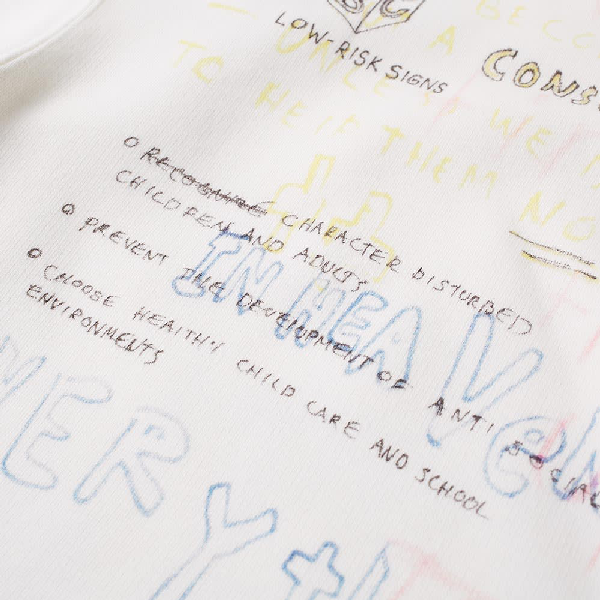 BECO
A
CONS
LOW-RISK SIGNS
UNLE WE
TO HELP THEM NO
O RECOGNIZE CHARACTER DISTURBED
CHILDREN AND ADULTS
O PREVENT THE DEVELOPMENT OF ANTI SOCIAL
O CHOOSE HEALTHY CHILD CARE AND SCHOOL
ENVIRONMENTS
IN HEAVEN
VERY